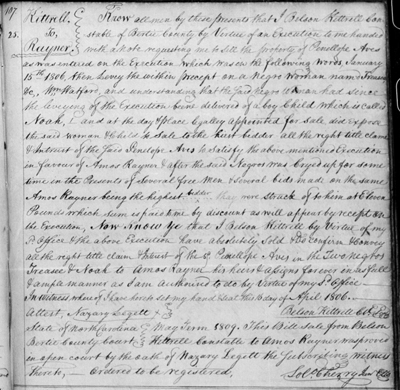 197
Kittrell } Know all men by these presents that I Belson Kittrell Con-
25. To } stable of Bertie County by Virtue of an Execution to me handed
Rayner } with a Note requesting me to Sell the property of Penellope Aves
as was entered on the Execution which was in the following words, January
15th 1806, then levey the within precept on a Negro Woman name Treasue
&c, Wm Watford, and understanding that the said Negro Woman had since
the leveying of the Execution bine delivered of a boy Child which is called
Noah, & and at the day & place legalley appointed for sale did expose
the said woman & Child to Sale to the hiest bidder all the right title claim
& Intrest of the Said Penelope Aves to Satisfy the above mentioned Execution
in favour of Amos Rayner & after the said Negros was Cryed up for some
time in the Presents of several Free Men & several bids made on the same
Amos Rayner being the highest bidder they were Struck of to him at Eleven
Pounds which sum is paid me by discount as will appear by recept on
the Execution, Now Know Ye that I Belson Kittrell by Vertue of my
Sd Office & the above Execution have absolutely Sold & Do Confirm & Convey
all the right title claim & Intrest of the Sd Penellope Aves in the Two Negros
Treasue & Noah to Amos Rayner his heirs & assigns forever in as full
& ample manner as I am Authorised to do by Vertue of my Sd Office
In witness where of I have hereto set my hand & seal this 10 day of April 1806.
Attest, Nazary Legett } Belson Kittrell Cob Seal
State of North Carolina } May Term 1809. This Bill Sale from Belson
Bertie County Court } Kittrell Constable to Amos Rayner was proved
in open court by the oath of Nazary Legett the Subscribing witness
thereto, — Ordered to be registered,
Sol. Cherry